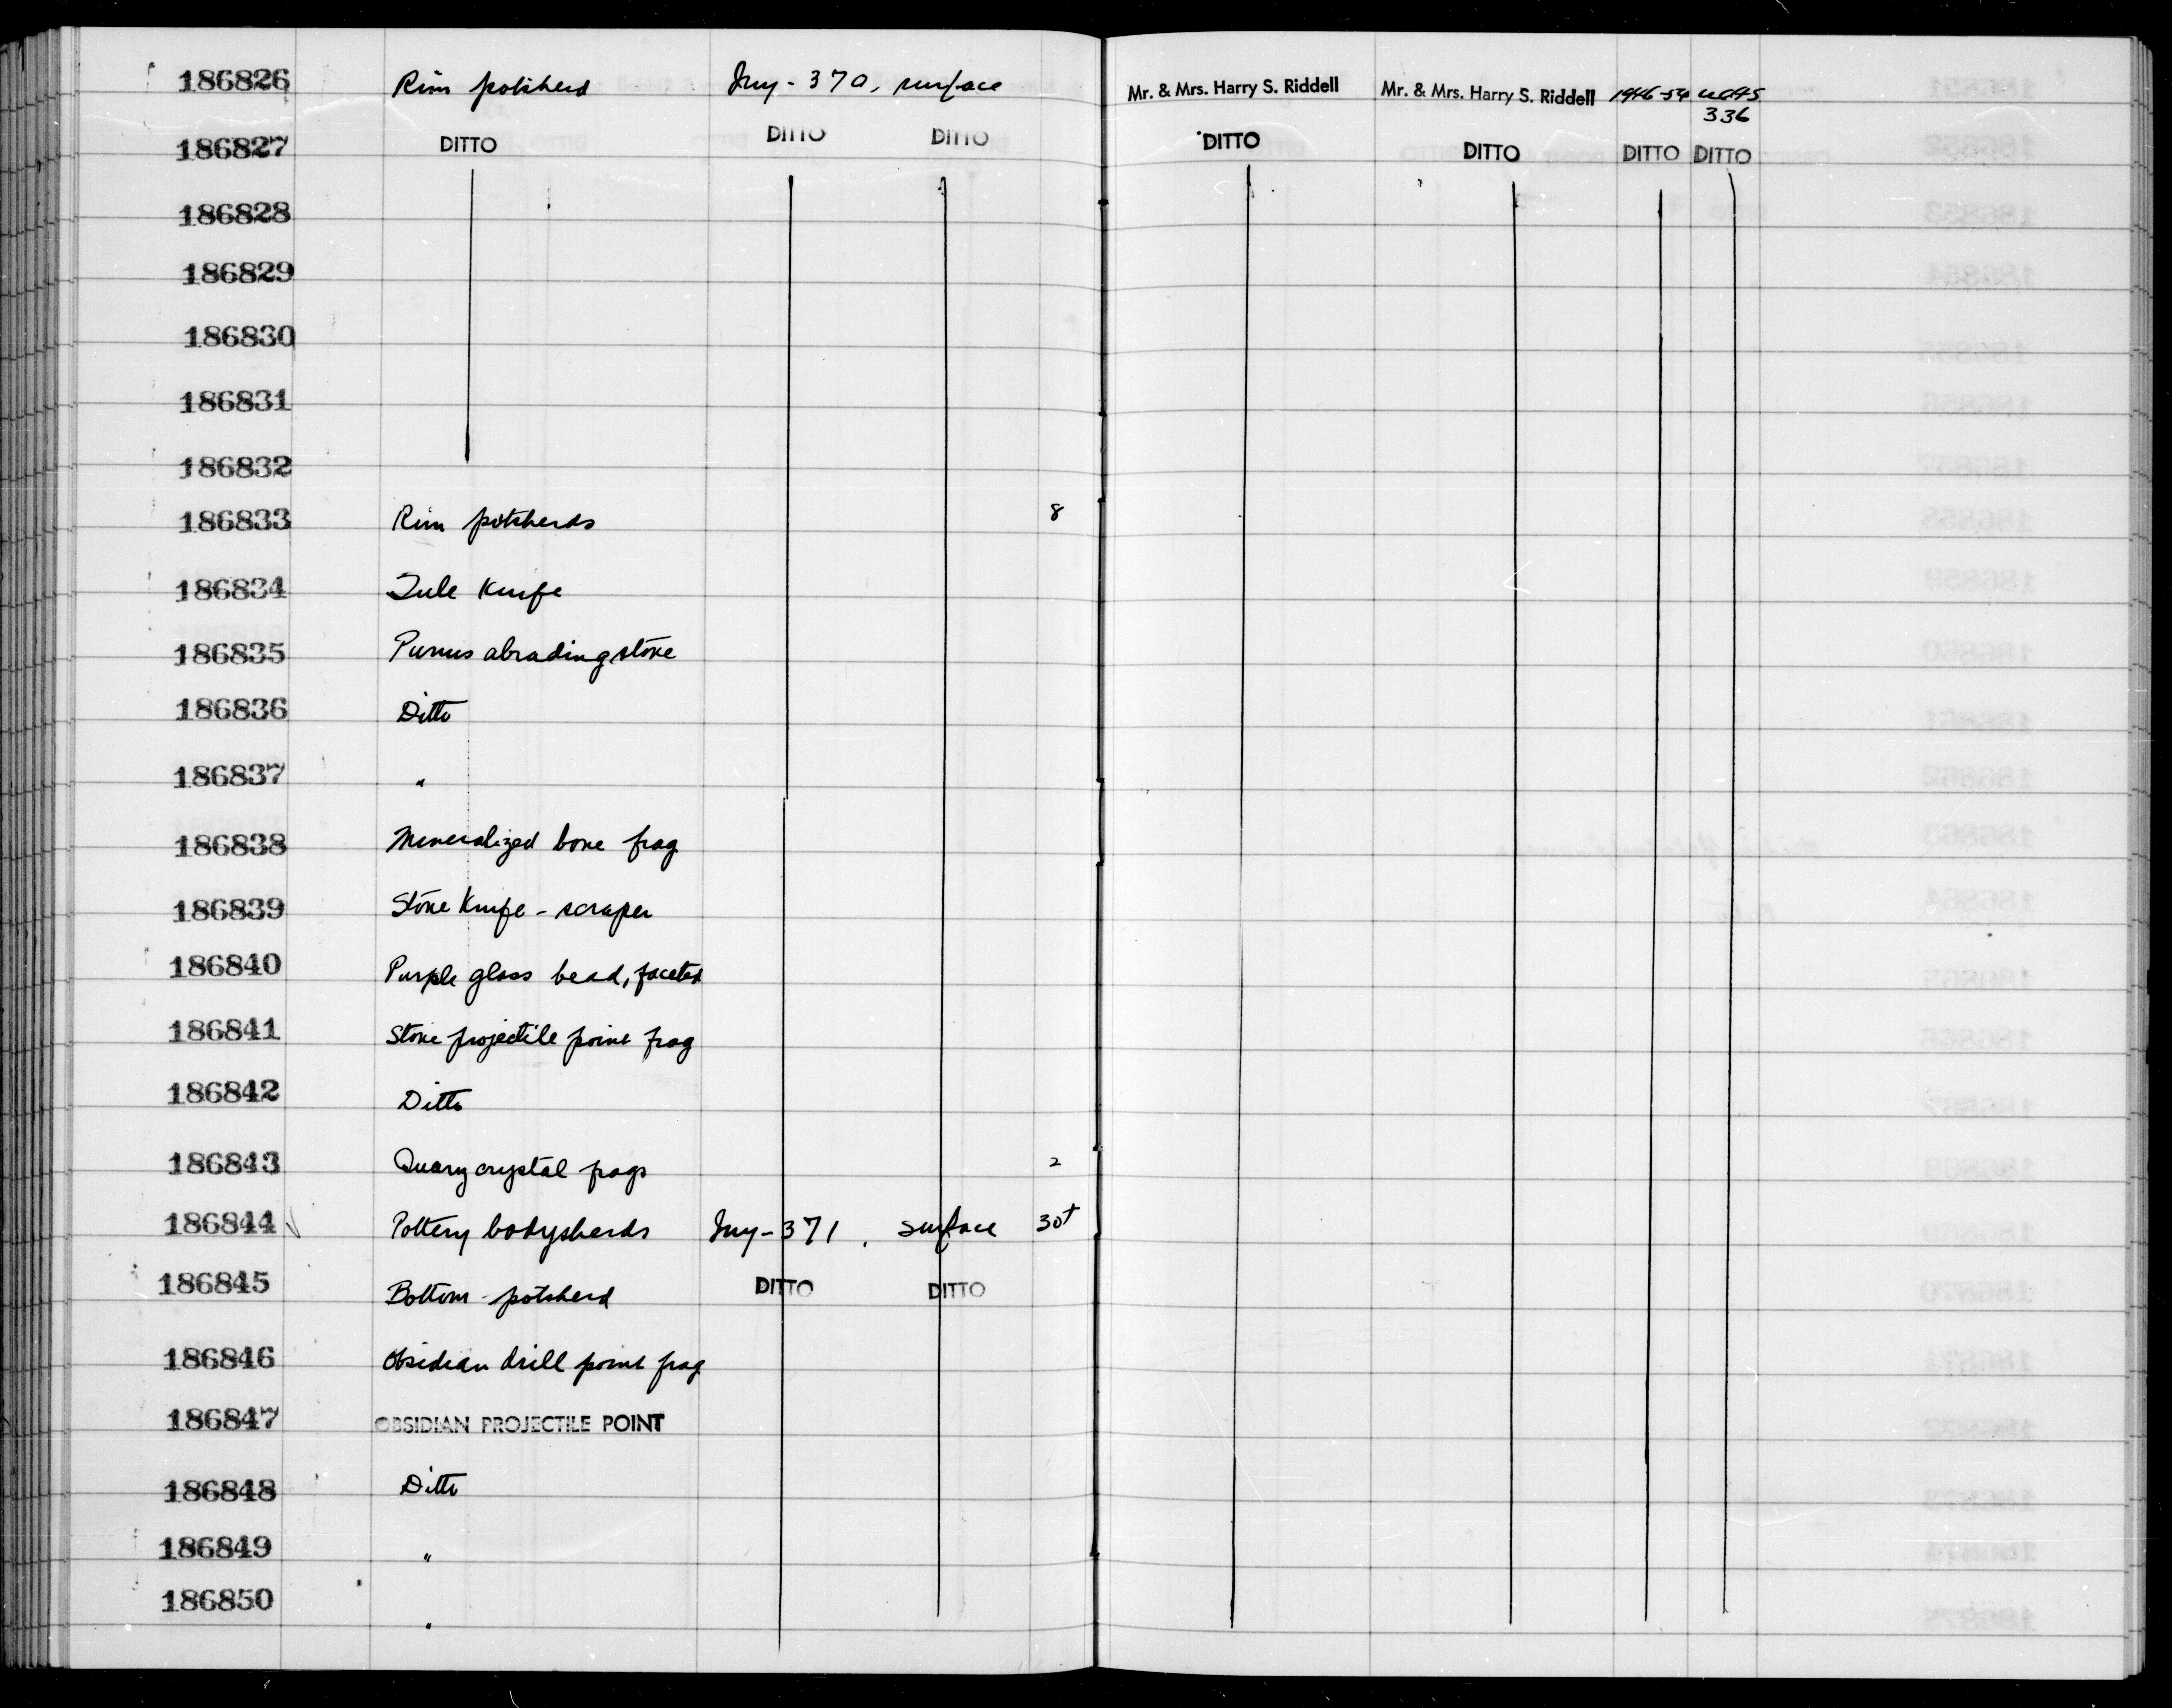 186826 Rim potsherd Iny-370, surface Mr. & Mrs. Harry S. Riddell Mr. & Mrs. Harry S. Riddell 1946-54 UCAS
336
186827 DITTO DITTO DITTO DITTO DITTO DITTO DITTO
186828
186829
186830
186831
186832
186833 Rim potsherds 8
186834 Tule Knife
186835 Pumus abrading stone
186836 Ditto
186837 "
186838 Mineralized bone frag
186839 Stone Knife - scraper
186840 Purple glass bead, faceted
186841 Stone projectile point frag
186842 Ditto
186843 Quarz crystal frags 2
186844 Pottery bodysherds Iny-371, surface 30+
186845 Bottom potsherd DITTO DITTO
186846 Obsidian drill point frag
186847 OBSIDIAN PROJECTILE POINT
186848 Ditto
186849 "
186850 "